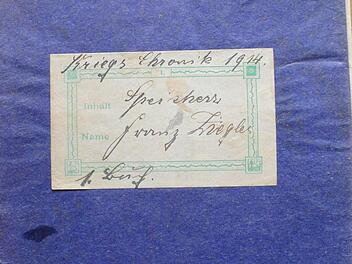 Kriegs Chronik 1914.
1.
Inhalt Speicherz
Name Franz Ziegler
1. Buch.